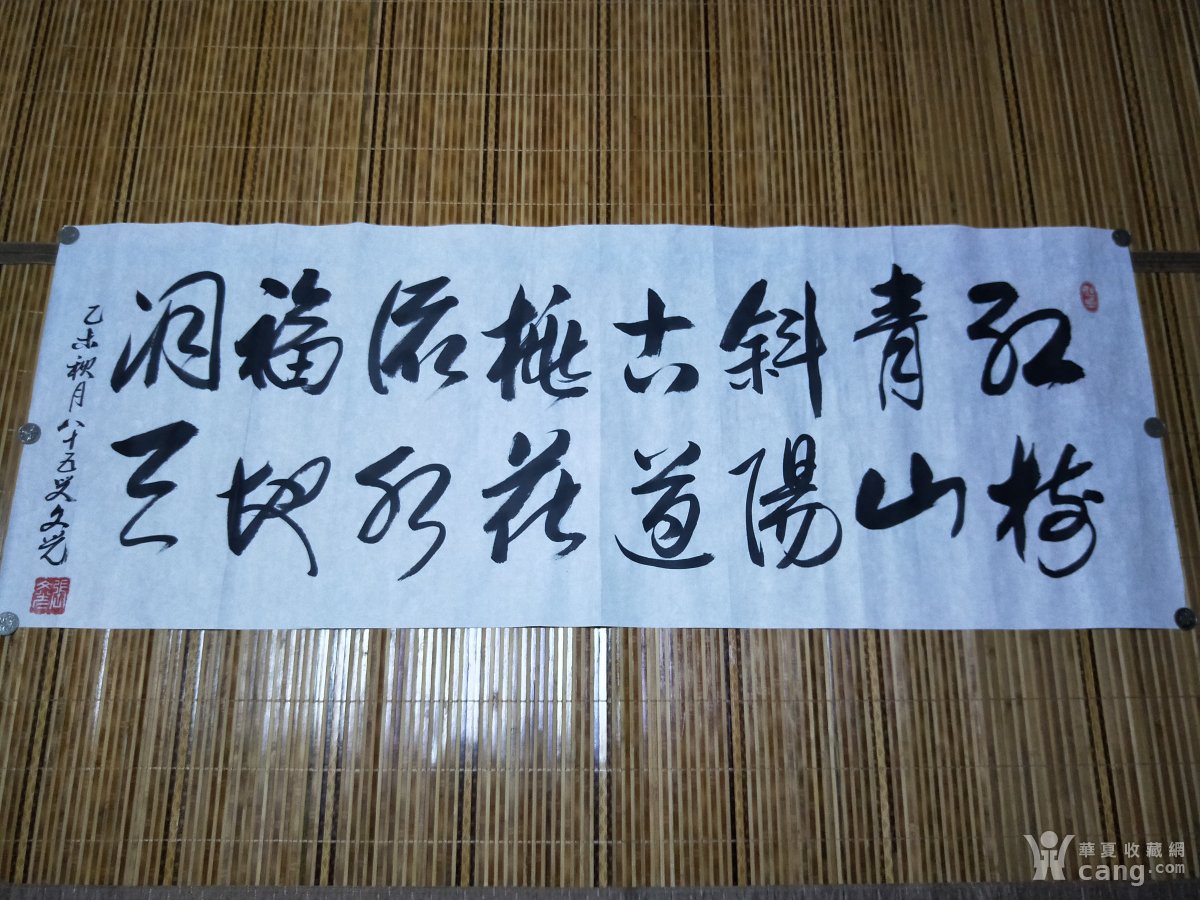 紅樹
青山
斜陽
古道
桃花
流水
福地
洞天
乙未秋月八十五叟文
華夏收藏網
cang.com